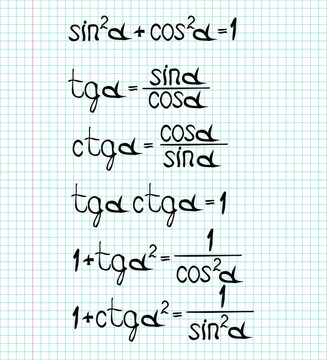 sin²α + cos²α = 1
tgα = sinα/cosα
ctgα = cosα/sinα
tgα ctgα = 1
1 + tgα² = 1/cos²α
1 + ctgα² = 1/sin²α